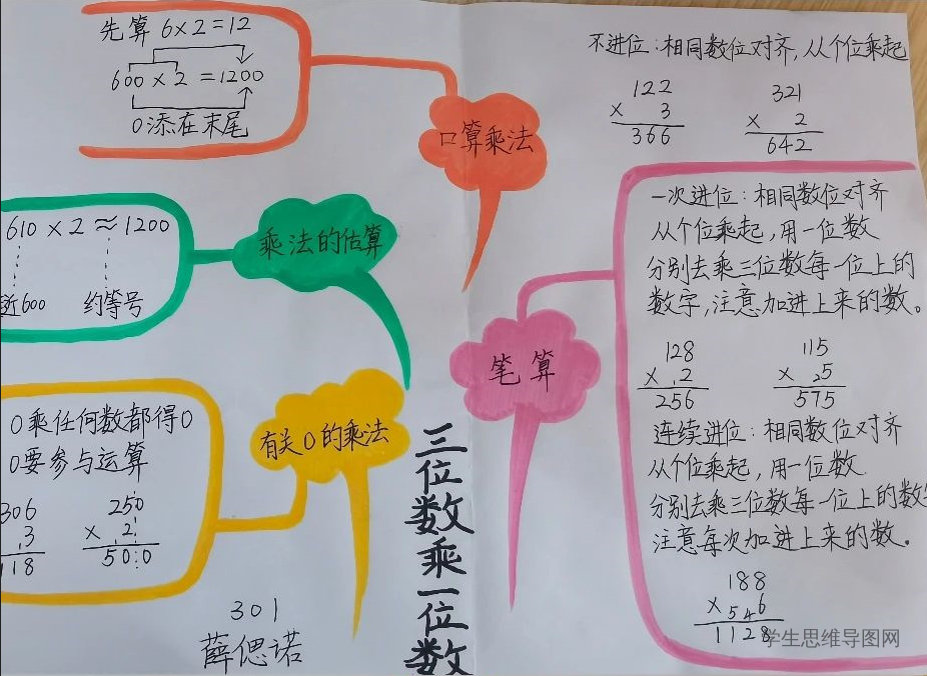 先算 6×2=12
600 × 2 = 1200
0添在末尾
口算乘法
610 × 2 ≈ 1200
近600 约等号
乘法的估算
0乘任何数都得0
0要参与运算
306
3
118
250
× 2
500
有关0的乘法
301
薛偲诺
三位数乘一位数
笔算
不进位：相同数位对齐，从个位乘起
122
× 3
366
321
× 2
642
一次进位：相同数位对齐
从个位乘起，用一位数
分别去乘三位数每一位上的
数字，注意加进上来的数。
128
× 1 2
256
115
× 2 5
575
连续进位：相同数位对齐
从个位乘起，用一位数
分别去乘三位数每一位上的数
注意每次加进上来的数。
188
× 5 4 6
1128
学生思维导图网